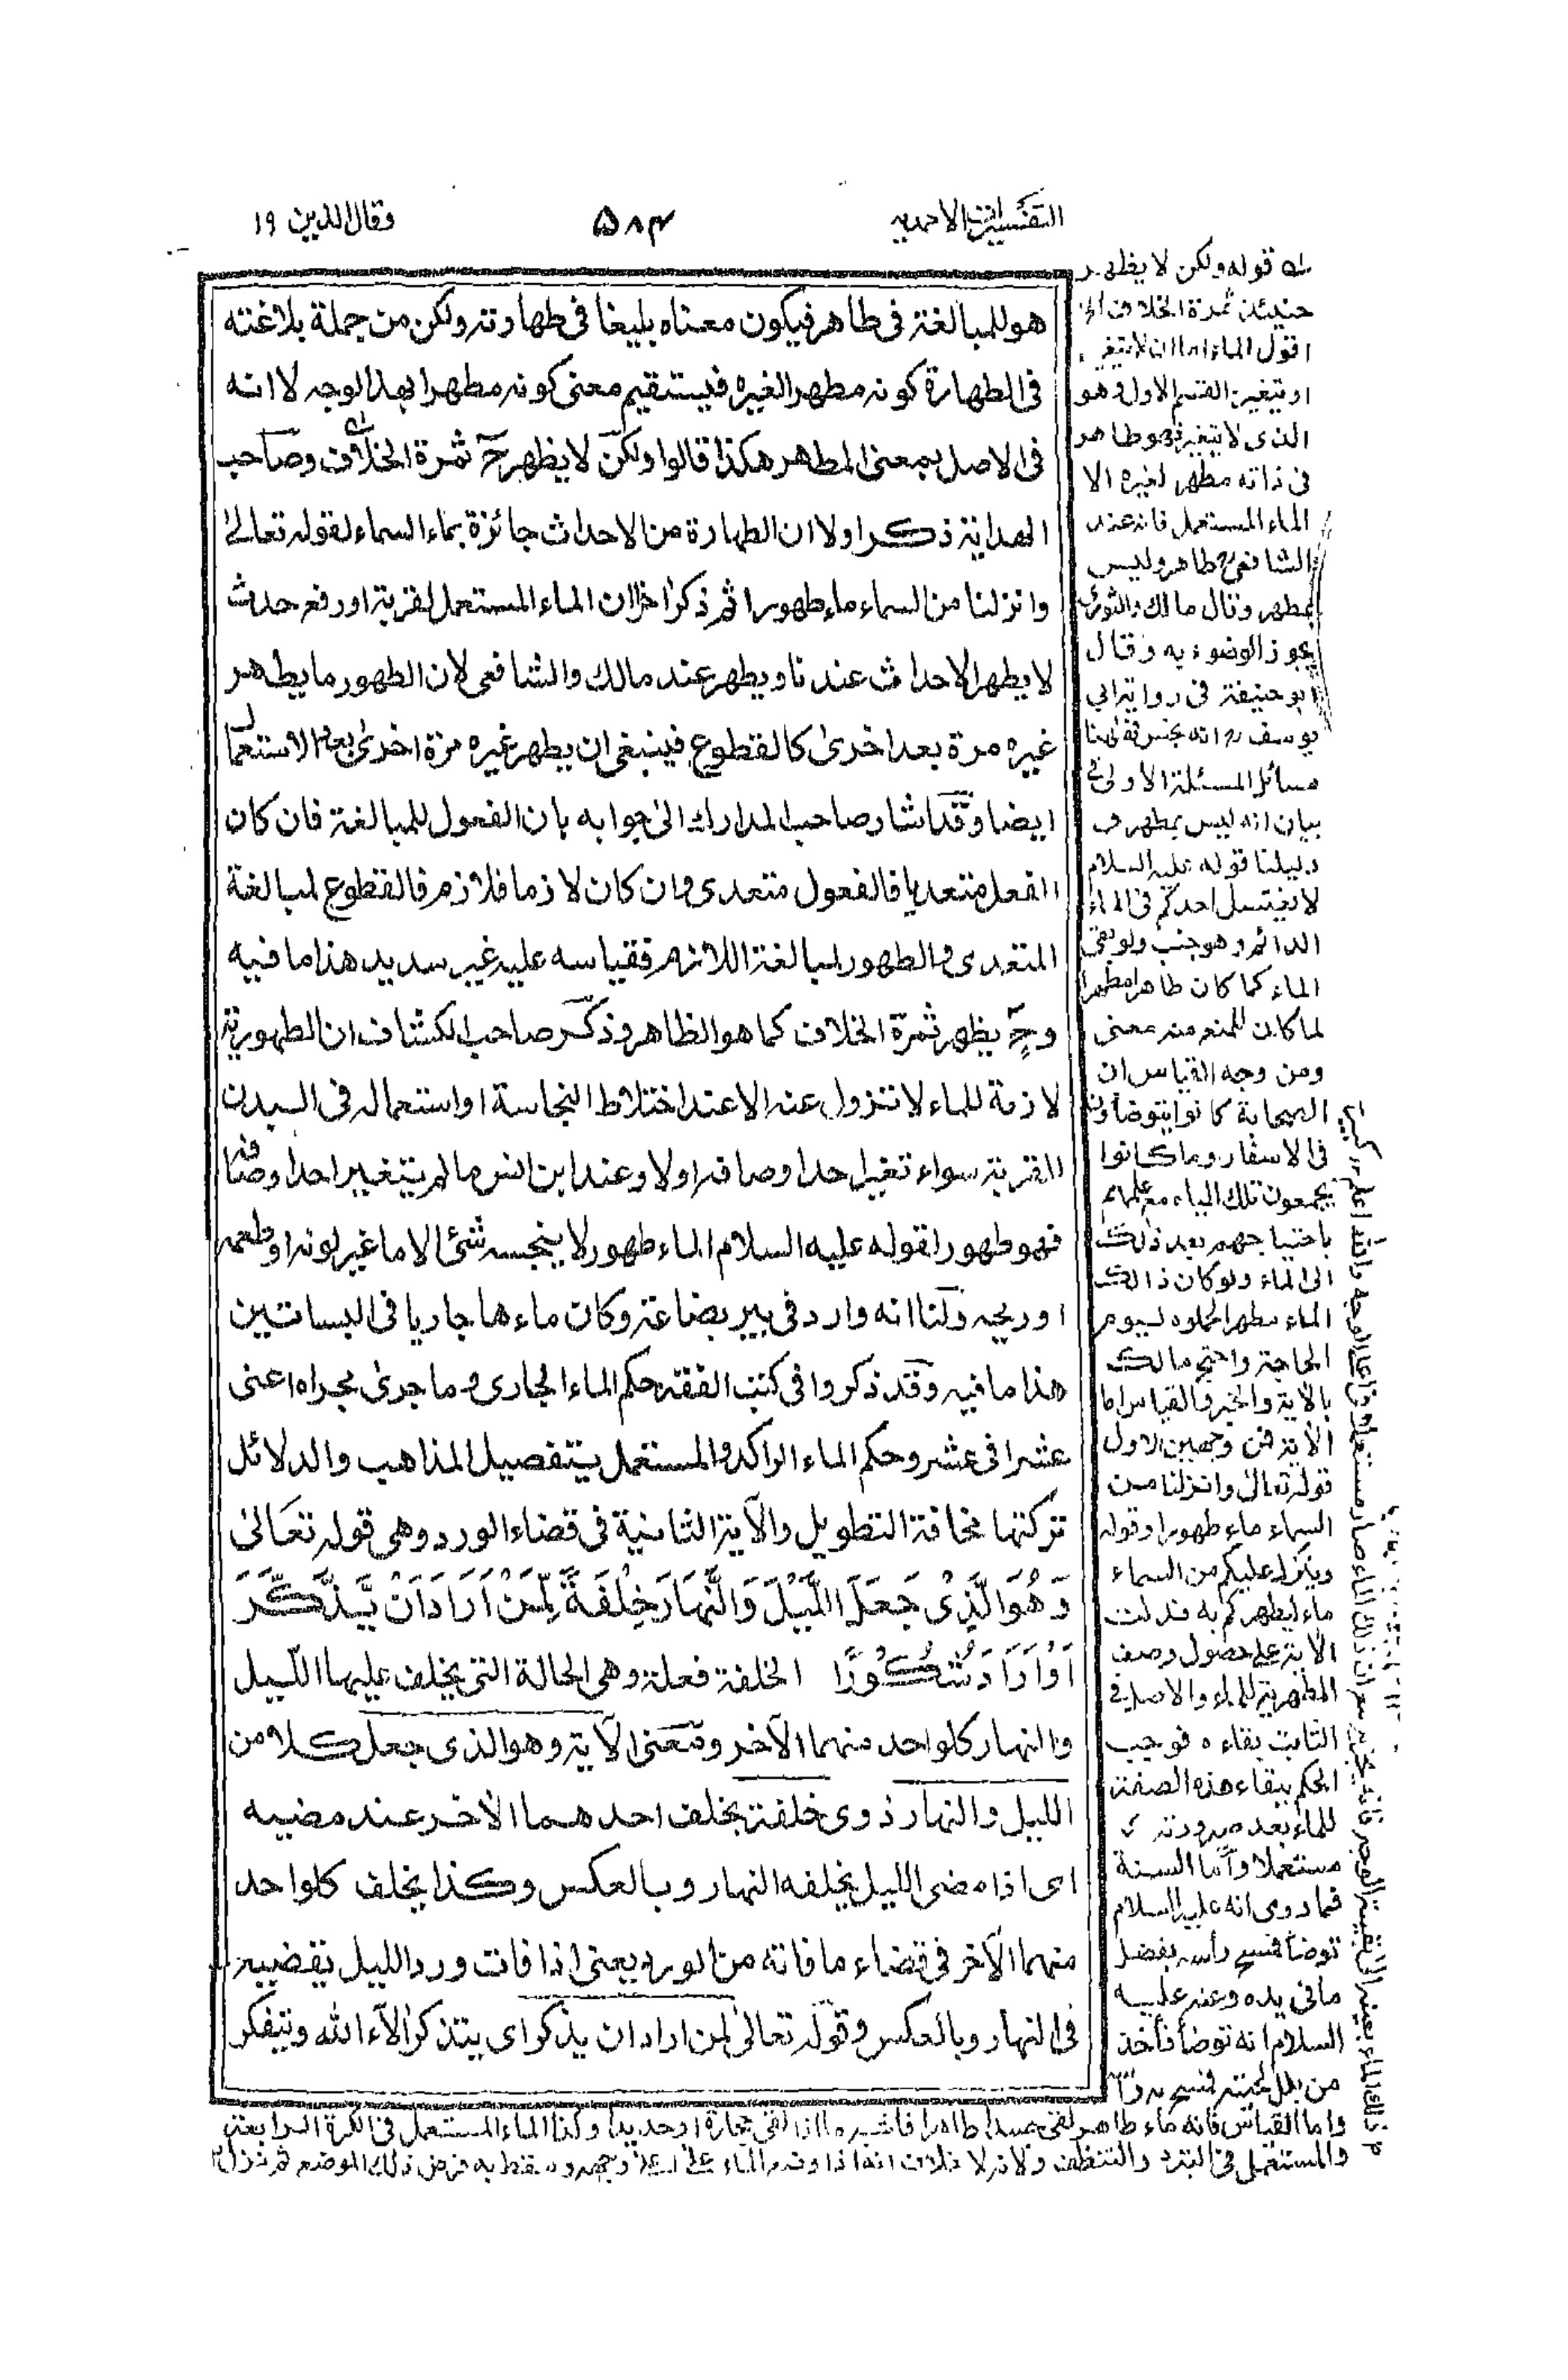 التفسيرات الاحمديه
۵۸۴
وقال الذين ۱۹
هو للمبالغة فى طاهر فيكون معناه بليغا فى طهارته ولكن من جملة بلاغته
فى الطهارة كونه مطهرا لغيره فيستقيم معنى كونه مطهرا بهذا الوجه لا انه
فى الاصل بمعنى المطهر هكذا قالوا ولكن لا يظهر ح ثمرة الخلاف وصاحب
الهداية ذكر اولا ان الطهارة من الاحداث جائزة بماء السماء لقوله تعالىٰ
وانزلنا من السماء ماء طهورا ثم ذكر اخرا ان الماء المستعمل لقربة او رفع حدث
لا يطهر الاحداث عندنا ويطهر عند مالك والشافعى لان الطهور ما يطهر
غيره مرة بعد اخرىٰ كالقطوع فينبغى ان يطهر غيره مرة اخرىٰ بعد الاستعمال
ايضا وقد اشار صاحب المدارك الىٰ جوابه بان الفعول للمبالغة فان كان
الفعل متعديا فالفعول متعدى وان كان لازما فلازم فالقطوع لمبالغة
المتعدى والطهور لمبالغة اللازم فقياسه عليه غير سديد هذا ما فيه
وح يظهر ثمرة الخلاف كما هو الظاهر وذكر صاحب الكشاف ان الطهورية
لازمة للماء لا تزول عنه الا عند اختلاط النجاسة او استعماله فى البدن
للقربة سواء تغير احد اوصافه اولا وعند ابن انس مالم يتغير احد اوصافه
فهو طهور لقوله عليه السلام الماء طهور لا ينجسه شئ الا ما غير لونه او طعمه
او ريحه ولنا انه وارد فى بير بضاعة وكان ماءها جاريا فى البساتين
هذا ما فيه وقد ذكروا فى كتب الفقه حكم الماء الجارى وما جرىٰ مجراه اعنى
عشرا فى عشر وحكم الماء الراكد والمستعمل بتفصيل المذاهب والدلائل
تركتها مخافة التطويل والآية الثانية فى قضاء الورد وهى قوله تعالىٰ
وَهُوَ الَّذِىْ جَعَلَ اللَّيْلَ وَالنَّهَارَ خِلْفَةً لِّمَنْ اَرَادَ اَنْ يَّذَّكَّرَ
اَوْ اَرَادَ شُكُوْرًا الخلفة فعلة وهى الحالة التى يخلف عليها الليل
والنهار كلواحد منهما الآخر ومعنى الآية وهو الذى جعل كلا من
الليل والنهار ذوى خلفة يخلف احدهما الآخر عند مضيه
اى اذا مضى الليل يخلفه النهار وبالعكس وكذا يخلف كلواحد
منهما الآخر فى قضاء ما فاته من الورد يعنى اذا فات ورد الليل يقضيه
فى النهار وبالعكس وقوله تعالىٰ لمن اراد ان يذكر اى يتذكر الآء الله ويتفكر
قوله ولكن لا يظهر
حينئذ ثمرة الخلاف الخ
اقول الماء اما ان لا يتغير
او يتغير القسم الاول وهو
الذى لا يتغير فهو طاهر
فى ذاته مطهر لغيره الا
الماء المستعمل فانه عند
الشافعى طاهر وليس
بمطهر وقال مالك والثورى
يجوز الوضوء به وقال
ابو حنيفة فى رواية ابى
يوسف انه نجس فههنا
مسائل المسئلة الاولى فى
بيان انه ليس بمطهر و
دليلنا قوله عليه السلام
لا يغتسل احدكم فى الماء
الدائم وهو جنب ولو بقى
الماء كما كان طاهرا مطهرا
لما كان للمنع منه معنى
ومن وجه القياس ان
الصحابة كانوا يتوضأون
فى الاسفار وما كانوا
يجمعون تلك المياه مع علمهم
باحتياجهم بعد ذلك
الى الماء ولو كان ذالك
الماء مطهرا لحملوه ليوم
الحاجة واحتج مالك
بالآية والخبر والقياس اما
الآية فمن وجهين الاول
قوله تعالىٰ وانزلنا من
السماء ماء طهورا وقوله
وينزل عليكم من السماء
ماء ليطهركم به فدلت
الآية على حصول وصف
المطهرية للماء والاصل فى
الثابت بقاءه فوجب
الحكم ببقاء هذه الصفة
للماء بعد صيرورته
مستعملا واما السنة
فما روى انه عليه السلام
توضأ فمسح رأسه بفضل
ما فى يده وعنه عليه
السلام انه توضأ فأخذ
من بلل لحيته فمسح به رأسه
واما القياس فانه ماء طاهر لقى جسدا طاهرا فاشبه ما اذا لقى حجارة او حديدا وكذا الماء المستعمل فى الكرة الرابعة
والمستعمل فى التبرد والتنظف ولانه لا خلاف انه اذا وضع الماء على اعلىٰ وجهه وسقط به فرض ذلك الموضع ثم نزل